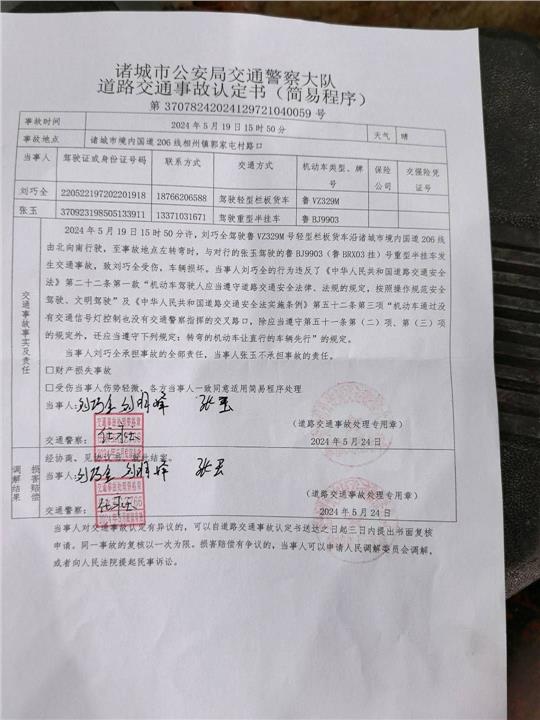 诸城市公安局交通警察大队
道路交通事故认定书（简易程序）
第 37078242024129721040059 号
事故时间 2024 年 5 月 19 日 15 时 50 分 天气 晴
事故地点 诸城市境内国道 206 线相州镇郭家屯村路口
当事人 驾驶证或身份证号码 联系方式 交通方式 机动车类型、牌号 保险公司 交强险凭证号
刘巧全 220522197202201918 18766206588 驾驶轻型栏板货车 鲁 VZ329M
张玉 370923198505133911 13371031671 驾驶重型半挂车 鲁 BJ9903
交通事故事实及责任
2024 年 5 月 19 日 15 时 50 分许，刘巧全驾驶鲁 VZ329M 号轻型栏板货车沿诸城市境内国道 206 线
由北向南行驶，至事故地点左转弯时，与对行的张玉驾驶的鲁 BJ9903（鲁 BRX03 挂）号重型半挂车发
生交通事故，致刘巧全受伤，车辆损坏。当事人刘巧全的行为违反了《中华人民共和国道路交通安全
法》第二十二条第一款“机动车驾驶人应当遵守道路交通安全法律、法规的规定，按照操作规范安全
驾驶、文明驾驶”及《中华人民共和国道路交通安全法实施条例》第五十二条第三项“机动车通过没
有交通信号灯控制也没有交通警察指挥的交叉路口，除应当遵守第五十一条第（二）项、第（三）项
的规定外，还应当遵守下列规定：转弯的机动车让直行的车辆先行”的规定。
当事人刘巧全承担事故的全部责任，当事人张玉不承担事故的责任。
□财产损失事故
□受伤当事人伤势轻微，各方当事人一致同意适用简易程序处理
当事人：刘巧全 张玉
（道路交通事故处理专用章）
交通警察：
2024 年 5 月 24 日
损害赔偿调解结果
经协商、见协议书、故此结案。
当事人：刘巧全 张玉
（道路交通事故处理专用章）
交通警察：
2024 年 5 月 24 日
当事人对交通事故认定有异议的，可以自道路交通事故认定书送达之日起三日内提出书面复核
申请。同一事故的复核以一次为限。损害赔偿有争议的，当事人可以申请人民调解委员会调解，
或者向人民法院提起民事诉讼。